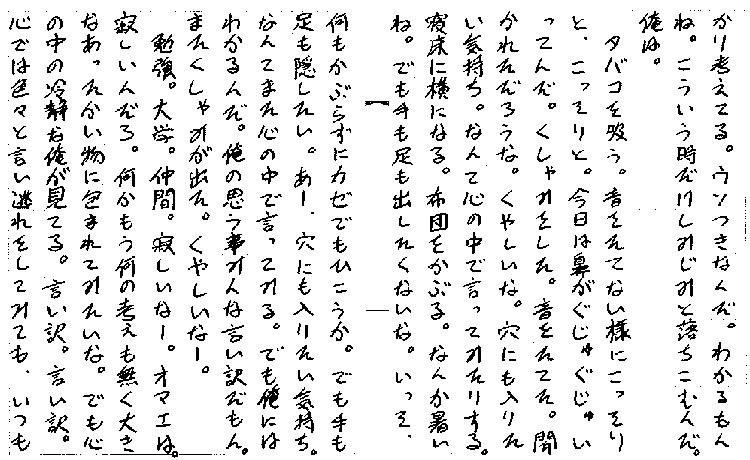 かり考えてる。ウソつきなんだ。わかるもん
ね。こういう時だけしみじみと落ちこむんだ。
俺は。
タバコを吸う。音をたてない様にこっそり
と、こっそりと。今日は鼻がぐじゅぐじゅい
ってんだ。くしゃみをした。音をたてた。聞
かれただろうな。くやしいな。穴にも入りた
い気持ち。なんて心の中で言ってみたりする。
寝床に横になる。布団をかぶる。なんか暑い
ね。でも手も足も出したくないな。いっそ、
何もかぶらずにカゼでもひこうか。でも手も
足も隠したい。あー、穴にも入りたい気持ち。
なんてまた心の中で言ってみる。でも俺には
わかるんだ。俺の思う事みんな言い訳だもん。
またくしゃみが出た。くやしいなー。
勉強。大学。仲間。寂しいなー。オマエは。
寂しいんだろ。何かもう何の考えも無く大き
なあったかい物に包まれてみたいな。でも心
の中の冷静な俺が見てる。言い訳。言い訳。
心では色々と言い逃れをしてみても、いつも